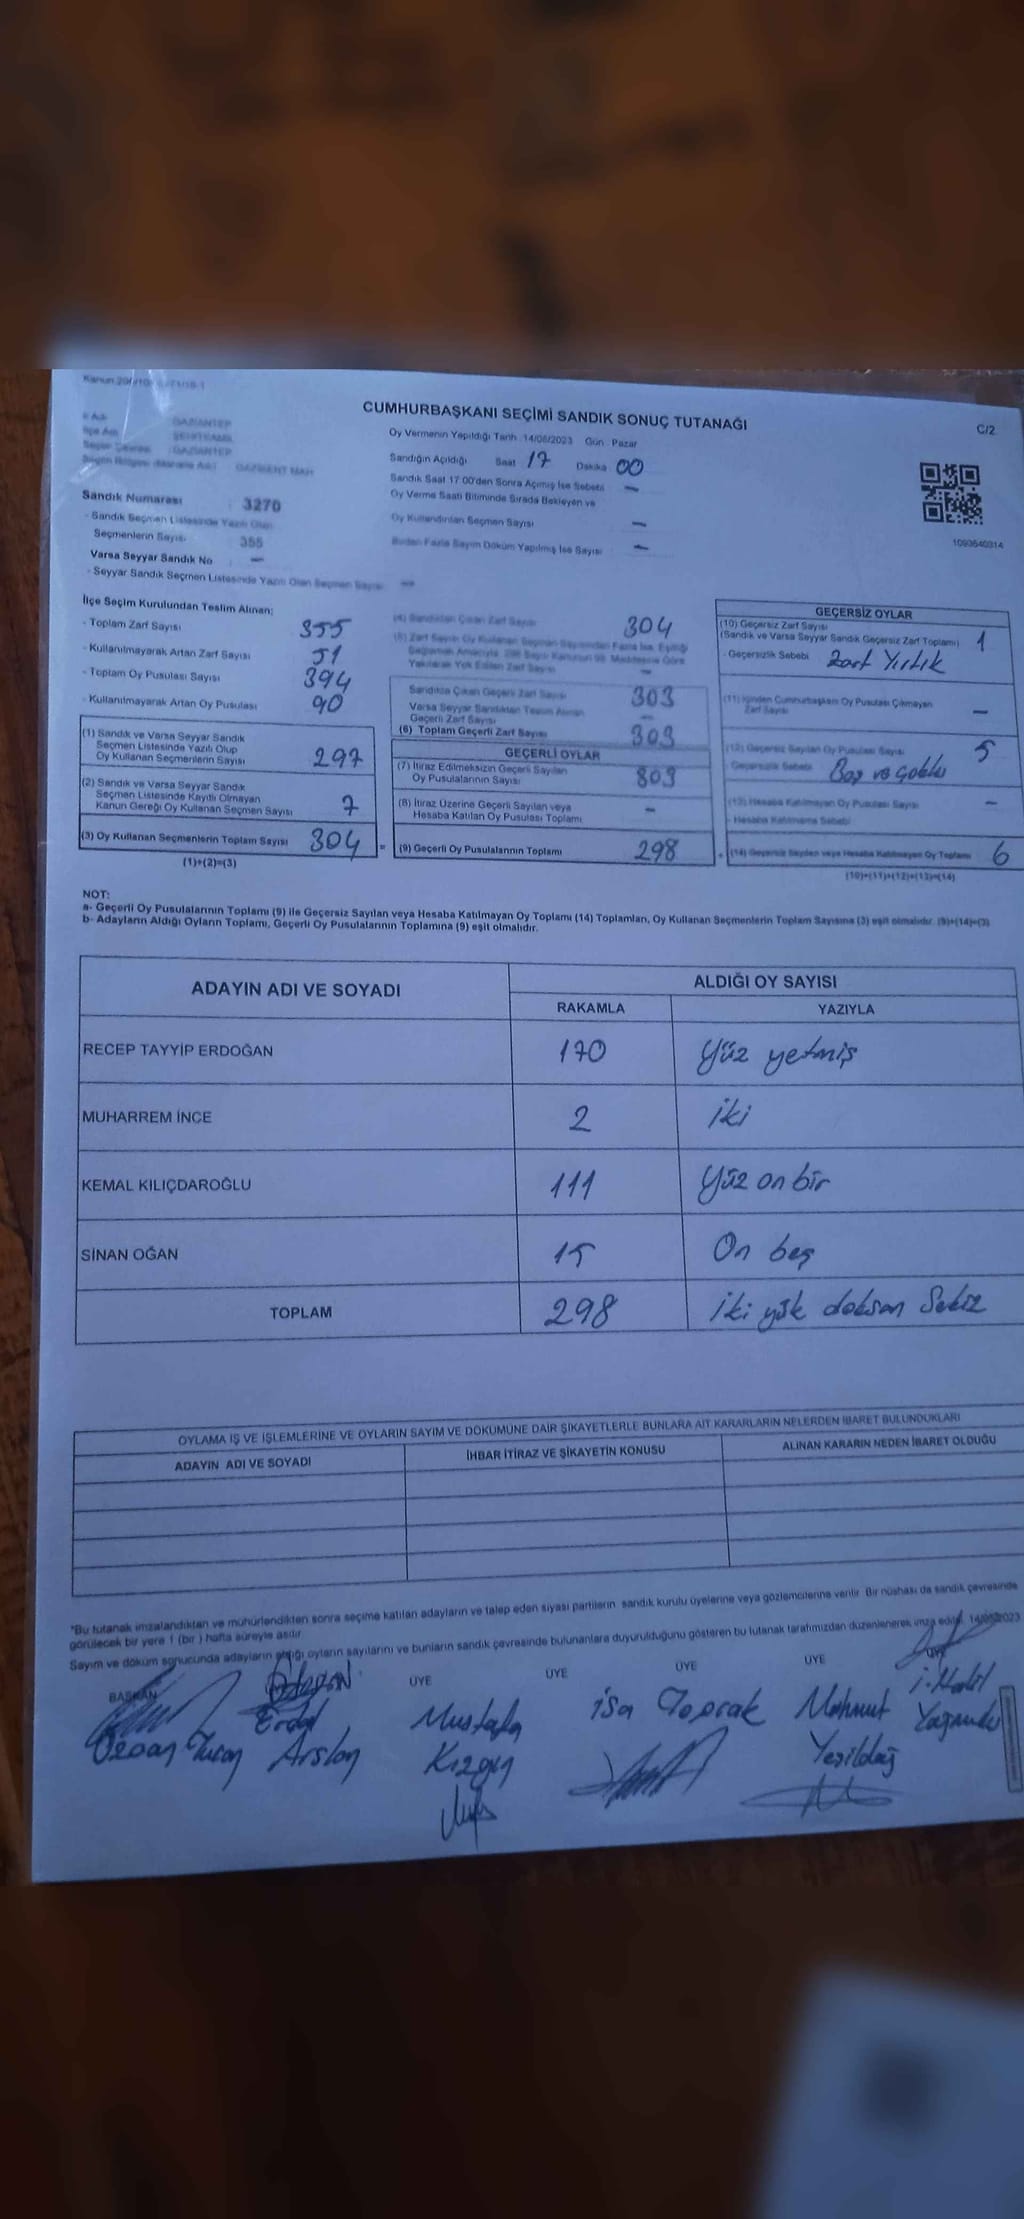 CUMHURBAŞKANI SEÇİMİ SANDIK SONUÇ TUTANAĞI
C/2
Oy Vermenin Yapıldığı Tarih 14/05/2023 Gün Pazar
GAZİANTEP
ŞEHİTKAMİL
GAZİANTEP
GAZİKENT MAH
Sandığın Açıldığı Saat 17 Dakika 00
Sandık Saat 17 00'den Sonra Açımış İse Sebebi —
Oy Verme Saati Bitiminde Sırada Bekleyen ve
Oy Kullandırılan Seçmen Sayısı —
Birden Fazla Sayım Döküm Yapılmış İse Sayısı —
1093640314
Sandık Numarası : 3270
- Sandık Seçmen Listesinde Yazılı Olan
Seçmenlerin Sayısı : 355
Varsa Seyyar Sandık No : —
- Seyyar Sandık Seçmen Listesinde Yazılı Olan Seçmen Sayısı : —
İlçe Seçim Kurulundan Teslim Alınan:
- Toplam Zarf Sayısı 355
- Kullanılmayarak Artan Zarf Sayısı 51
- Toplam Oy Pusulası Sayısı 394
- Kullanılmayarak Artan Oy Pusulası 90
(1) Sandık ve Varsa Seyyar Sandık
Seçmen Listesinde Yazılı Olup
Oy Kullanan Seçmenlerin Sayısı 297
(2) Sandık ve Varsa Seyyar Sandık
Seçmen Listesinde Kayıtlı Olmayan
Kanun Gereği Oy Kullanan Seçmen Sayısı 7
(3) Oy Kullanan Seçmenlerin Toplam Sayısı 304
(1)+(2)=(3)
(4) Sandıktan Çıkan Zarf Sayısı 304
(5) Zarf Sayısı Oy Kullanan Seçmen Sayısından Fazla İse, Eşitliği
Sağlamak Amacıyla 298 Sayılı Kanunun 98. Maddesine Göre
Yakılarak Yok Edilen Zarf Sayısı —
Sandıkta Çıkan Geçerli Zarf Sayısı 303
Varsa Seyyar Sandıktan Teslim Alınan
Geçerli Zarf Sayısı —
(6) Toplam Geçerli Zarf Sayısı 303
GEÇERLİ OYLAR
(7) İtiraz Edilmeksizin Geçerli Sayılan
Oy Pusulalarının Sayısı 303
(8) İtiraz Üzerine Geçerli Sayılan veya
Hesaba Katılan Oy Pusulası Toplamı —
(9) Geçerli Oy Pusulalarının Toplamı 298
GEÇERSİZ OYLAR
(10) Geçersiz Zarf Sayısı
(Sandık ve Varsa Seyyar Sandık Geçersiz Zarf Toplamı) 1
- Geçersizlik Sebebi Zarf Yırtık
(11) İçinden Cumhurbaşkanı Oy Pusulası Çıkmayan
Zarf Sayısı —
(12) Geçersiz Sayılan Oy Pusulası Sayısı 5
- Geçersizlik Sebebi Boş ve
(13) Hesaba Katılmayan Oy Pusulası Sayısı —
- Hesaba Katılmama Sebebi
(14) Geçersiz Sayılan veya Hesaba Katılmayan Oy Toplamı 6
(10)+(11)+(12)+(13)=(14)
NOT:
a- Geçerli Oy Pusulalarının Toplamı (9) ile Geçersiz Sayılan veya Hesaba Katılmayan Oy Toplamı (14) Toplamları, Oy Kullanan Seçmenlerin Toplam Sayısına (3) eşit olmalıdır. (9)+(14)=(3)
b- Adayların Aldığı Oyların Toplamı, Geçerli Oy Pusulalarının Toplamına (9) eşit olmalıdır.
ADAYIN ADI VE SOYADI
ALDIĞI OY SAYISI
RAKAMLA YAZIYLA
RECEP TAYYİP ERDOĞAN 170 Yüz yetmiş
MUHARREM İNCE 2 iki
KEMAL KILIÇDAROĞLU 111 Yüz on bir
SİNAN OĞAN 15 On beş
TOPLAM 298 iki yük doksan Sekiz
OYLAMA İŞ VE İŞLEMLERİNE VE OYLARIN SAYIM VE DÖKÜMÜNE DAİR ŞİKAYETLERLE BUNLARA AİT KARARLARIN NELERDEN İBARET BULUNDUKLARI
ADAYIN ADI VE SOYADI İHBAR İTİRAZ VE ŞİKAYETİN KONUSU ALINAN KARARIN NEDEN İBARET OLDUĞU
*Bu tutanak imzalandıktan ve mühürlendikten sonra seçime katılan adayların ve talep eden siyasi partilerin sandık kurulu üyelerine veya gözlemcilerine verilir. Bir nüshası da sandık çevresinde
görülecek bir yere 1 (bir ) hafta süreyle asılır.
Sayım ve döküm sonucunda adayların aldığı oyların sayılarını ve bunların sandık çevresinde bulunanlara duyurulduğunu gösteren bu tutanak tarafımızdan düzenlenerek imza edildi. 14/05/2023
BAŞKAN ÜYE ÜYE ÜYE ÜYE
Turan
Erdal
Arslan
Mustafa
Kızgın
İsa Toprak
Mahmut
Yeşildağ
i. Halil